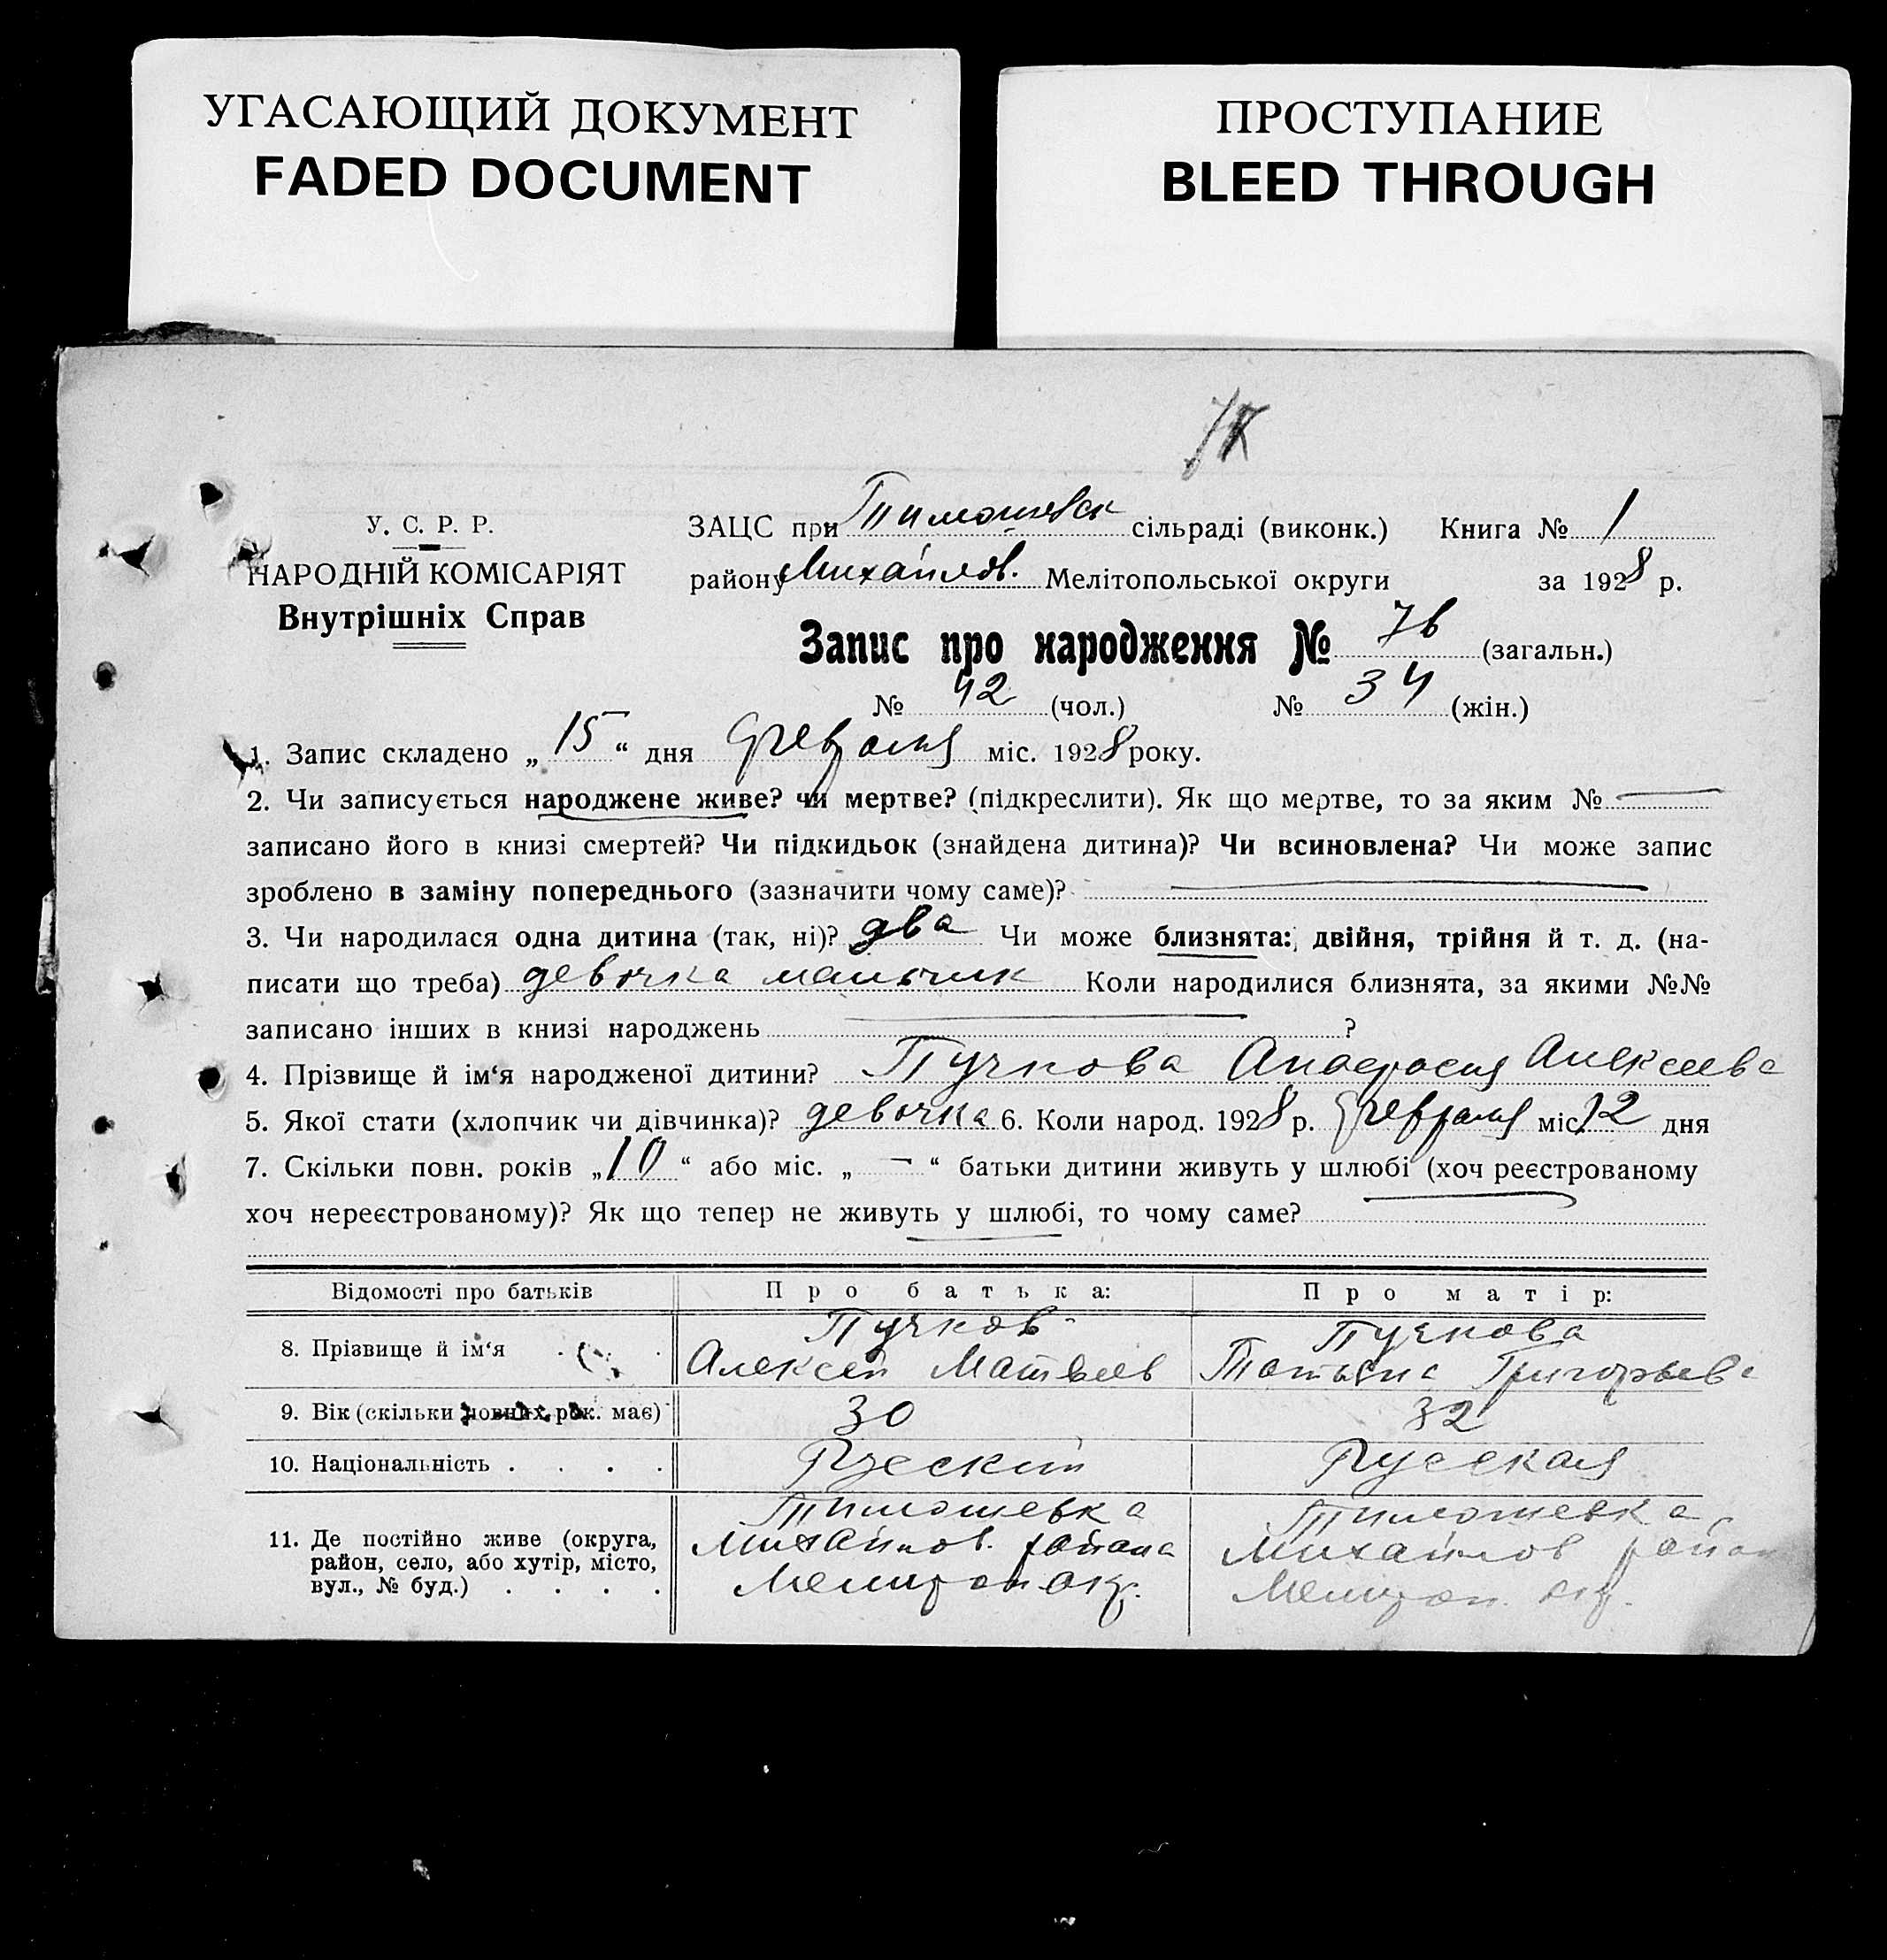 УГАСАЮЩИЙ ДОКУМЕНТ
FADED DOCUMENT
ПРОСТУПАНИЕ
BLEED THROUGH
У. С. Р. Р.
НАРОДНІЙ КОМІСАРІЯТ
Внутрішніх Справ
ЗАЦС при Тимошевск сільраді (виконк.) Книга № 1
району Михайлов. Мелітопольської округи за 1928 р.
Запис про народження № 76 (загальн.)
№ 42 (чол.) № 34 (жін.)
1. Запис складено „ 15 “ дня февраля міс. 1928 року.
2. Чи записується народжене живе? чи мертве? (підкреслити). Як що мертве, то за яким №
записано його в книзі смертей? Чи підкидьок (знайдена дитина)? Чи всиновлена? Чи може запис
зроблено в заміну попереднього (зазначити чому саме)?
3. Чи народилася одна дитина (так, ні)? два Чи може близнята: двійня, трійня й т. д. (на-
писати що треба) девочка мальчик Коли народилися близнята, за якими №№
записано інших в книзі народжень ?
4. Прізвище й ім‘я народженої дитини? Пучкова Алексеева
5. Якої стати (хлопчик чи дівчинка)? девочка 6. Коли народ. 1928 р. февраля міс. 12 дня
7. Скільки повн. років „ 10 “ або міс. „ — “ батьки дитини живуть у шлюбі (хоч реєстрованому
хоч нереєстрованому)? Як що тепер не живуть у шлюбі, то чому саме?
Відомості про батьків Про батька: Про матір:
8. Прізвище й ім‘я Пучков Пучкова
Алексей Матвеев Татьяна Григорьева
9. Вік (скільки повних рок. має) 30 32
10. Національність . . . . Русский Русская
11. Де постійно живе (округа, Тимошевка Тимошевка
район, село, або хутір, місто, Михайлов. района Михайлов район
вул., № буд.) . . . . Мелитоп окр. Мелитоп. окр.